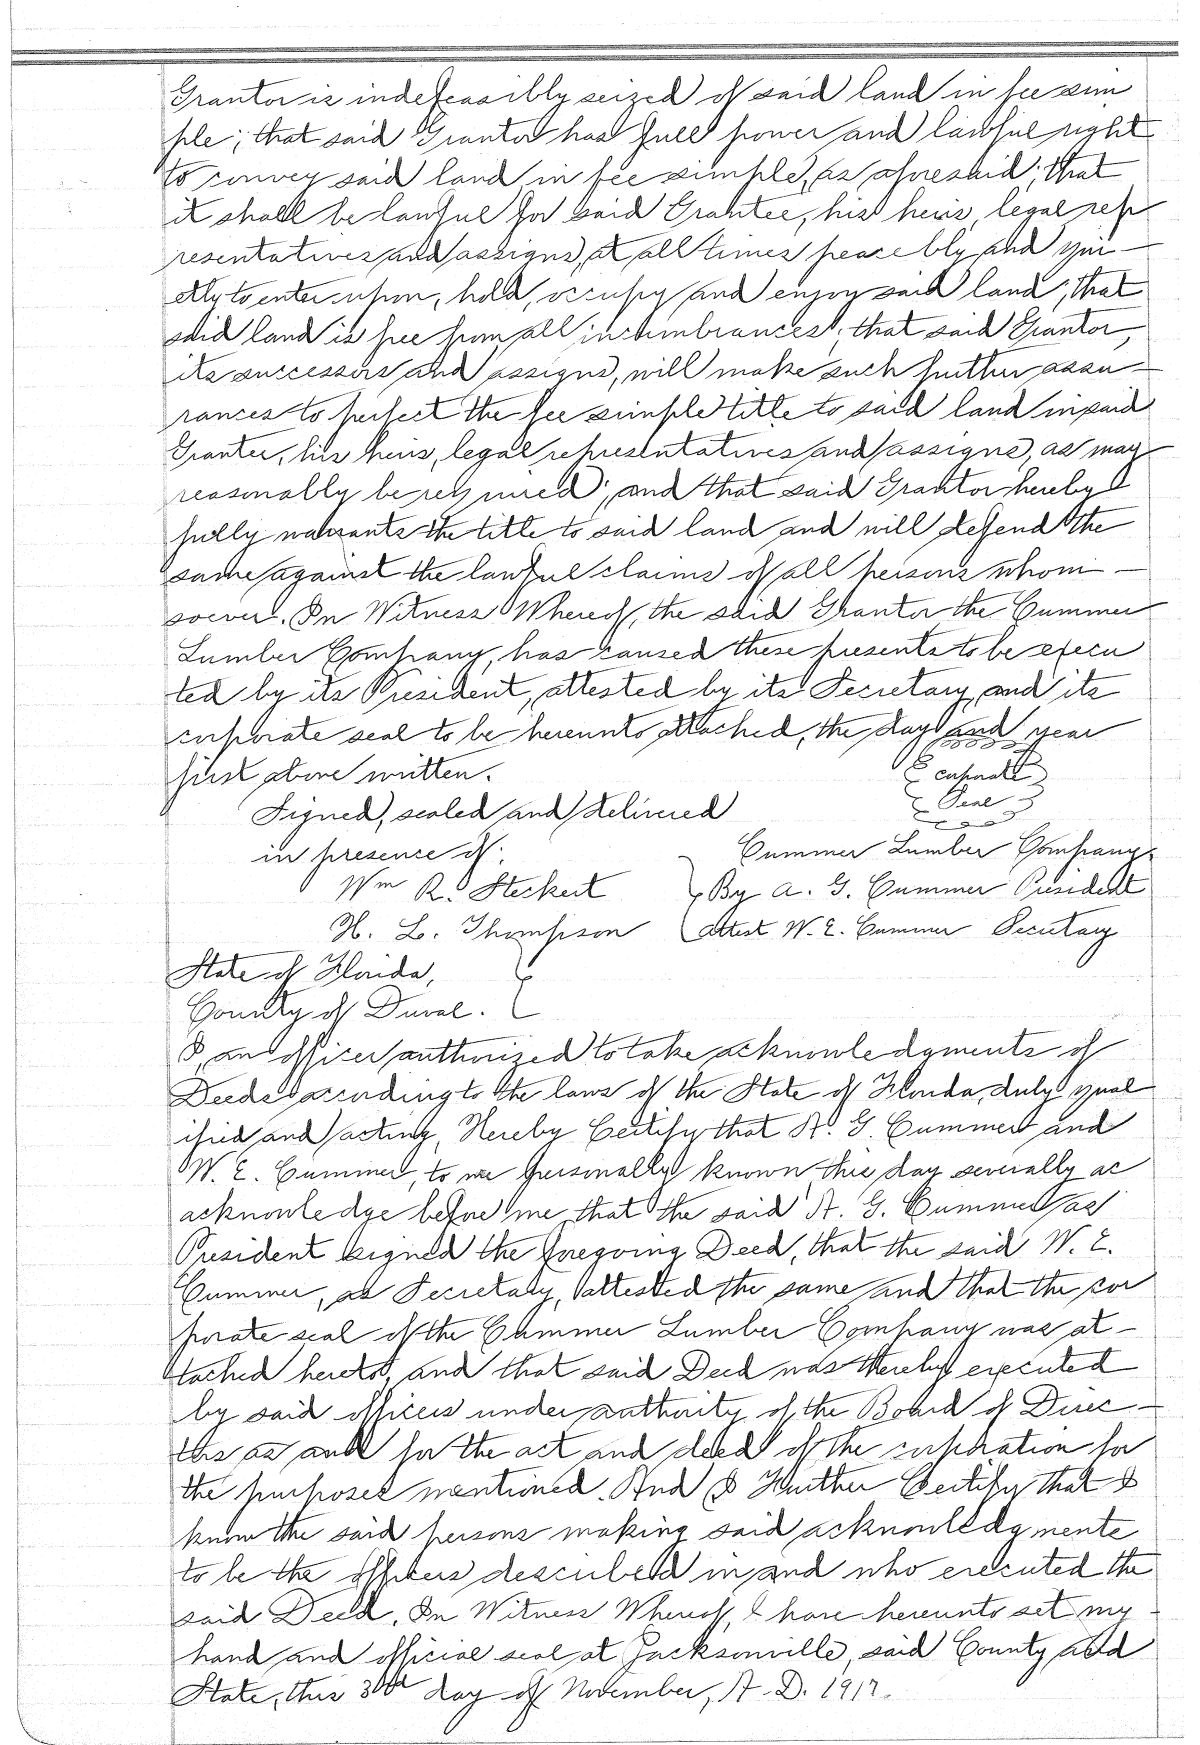 Grantor is indefeasibly seized of said land in fee sim
ple; that said Grantor has full power and lawful right
to convey said land in fee simple, as aforesaid; that
it shall be lawful for said Grantee, his heirs, legal rep
resentatives and assigns, at all times peacebly and qui-
etly to enter upon, hold, occupy and enjoy said land; that
said land is free from all incumbrances; that said Grantor,
its successors and assigns, will make such further assu-
rances to perfect the fee simple title to said land in said
Grantee, his heirs, legal representatives and assigns, as may
reasonably be required; and that said Grantor hereby
fully warrants the title to said land and will defend the
same against the lawful claims of all persons whom-
soever. In Witness Whereof, the said Grantor the Cummer
Lumber Company, has caused these presents to be execu
ted by its President, attested by its Secretary, and its
corporate seal to be hereunto attached, the day and year
first above written.
Corporate
Seal
Signed, sealed and delivered
in presence of:
Cummer Lumber Company.
Wm R. Steckert
By A. G. Cummer President
H. L. Thompson
Attest W. E. Cummer Secretary
State of Florida,
County of Duval.
I, an officer authorized to take acknowledgments of
Deeds according to the laws of the State of Florida, duly qual
ified and acting, Hereby Certify that A. G. Cummer and
W. E. Cummer, to me personally known this day severally ac
acknowledge before me that the said A. G. Cummer as
President signed the foregoing Deed, that the said W. E.
Cummer, as Secretary, attested the same and that the cor
porate seal of the Cummer Lumber Company was at-
tached hereto, and that said Deed was thereby executed
by said officers under authority of the Board of Direc-
tors as and for the act and deed of the corporation for
the purposes mentioned. And I Further Certify that I
know the said persons making said acknowledgments
to be the officers described in and who executed the
said Deed. In Witness Whereof, I have hereunto set my
hand and official seal at Jacksonville, said County and
State, this day of November, A. D. 1917.